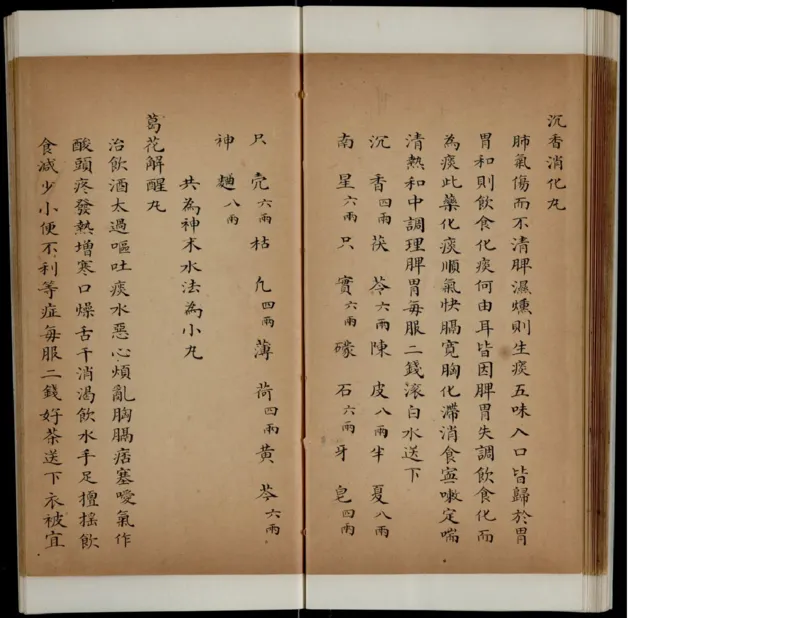 沉香消化丸
肺氣傷而不清脾濕燻則生痰五味入口皆歸於胃
胃和則飲食化痰何由耳皆因脾胃失調飲食化而
為痰此藥化痰順氣快膈寬胸化滯消食寧嗽定喘
清熱和中調理脾胃每服二錢滚白水送下
沉香四兩茯苓六兩陳皮八兩半夏八兩
南星六兩只實六兩礞石六兩牙皂四兩
只壳六兩枯凢四兩薄荷四兩黃芩六兩
神麯八兩
共為神末水法為小丸
葛花解醒丸
治飲酒太過嘔吐痰水惡心煩亂胸膈痞塞噯氣作
酸頭疼發熱增寒口燥舌干消渴飲水手足擅搖飲
食減少小便不利等症每服二錢好茶送下衣被宜